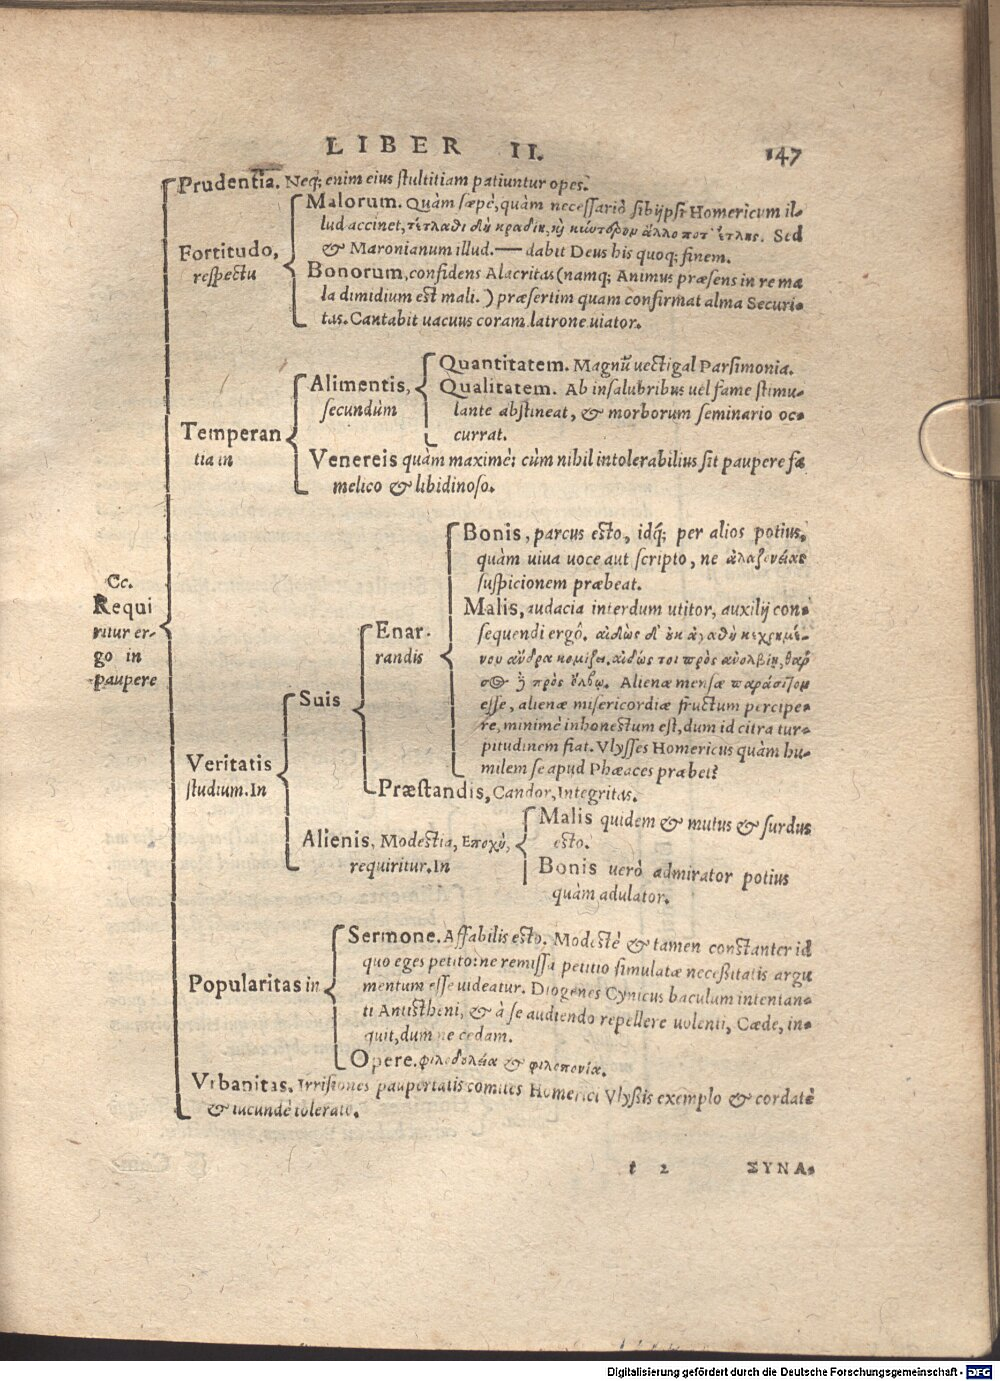 LIBER II. 147
Prudentia. Neq; enim eius stultitiam patiuntur opes.
Fortitudo,
respectu
Malorum. Quàm sæpè, quàm necessariò sibijpsi Homericum il-
lud accinet, τέτλαθι δὴ κραδίη, καὶ κώντερον ἄλλο ποτ' ἔτλης. Sed
& Maronianum illud. — dabit Deus his quoq; finem.
Bonorum, confidens Alacritas (namq; Animus præsens in re ma
la dimidium est mali.) præsertim quam confirmat alma Securi-
tas. Cantabit uacuus coram latrone uiator.
Temperan
tia in
Alimentis,
secundùm
Quantitatem. Magnũ uectigal Parsimonia.
Qualitatem. Ab insalubribus uel fame stimu-
lante abstineat, & morborum seminario oc-
currat.
Venereis quàm maximè; cùm nihil intolerabilius sit paupere fa
melico & libidinoso.
Cc.
Requi
ritur er-
go in
paupere
Veritatis
studium. In
Suis
Enar-
randis
Bonis, parcus esto, idq́; per alios potius,
quàm uiua uoce aut scripto, ne ἀλαζονείας
suspicionem præbeat.
Malis, audacia interdum utitor, auxilij con-
sequendi ergô. αἰδὼς δ' ἐκ ἀγαθὴ κεχρημέ-
νον ἄνδρα κομίζει, αἰδώς τοι πρὸς ἀνολβίῃ, θάρ
σος πρὸς ὄλβῳ. Alienæ mensæ παράσιτον
esse, alienæ misericordiæ fructum percipe-
re, minimè inhonestum est, dum id citra tur-
pitudinem fiat. Vlysses Homericus quàm hu-
milem se apud Phæaces præbet?
Præstandis, Candor, Integritas.
Alienis, Modestia, Εποχὴ,
requiritur. In
Malis quidem & mutus & surdus
esto.
Bonis uerò admirator potius
quàm adulator.
Popularitas in
Sermone. Affabilis esto. Modestè & tamen constanter id
quo eges petito: ne remissa petitio simulatæ necessitatis argu
mentum esse uideatur. Diogenes Cynicus baculum intentan-
ti Antistheni, & à se audiendo repellere uolenti, Cæde, in-
quit, dum ne cedam.
Opere. φιλοδολεία & φιλοπονία.
Vrbanitas. Irrisiones paupertatis comites Homerici Vlyssis exemplo & cordatè
& iucundè tolerato.
t 2 ΣΥΝΑ-
Digitalisierung gefördert durch die Deutsche Forschungsgemeinschaft - DFG